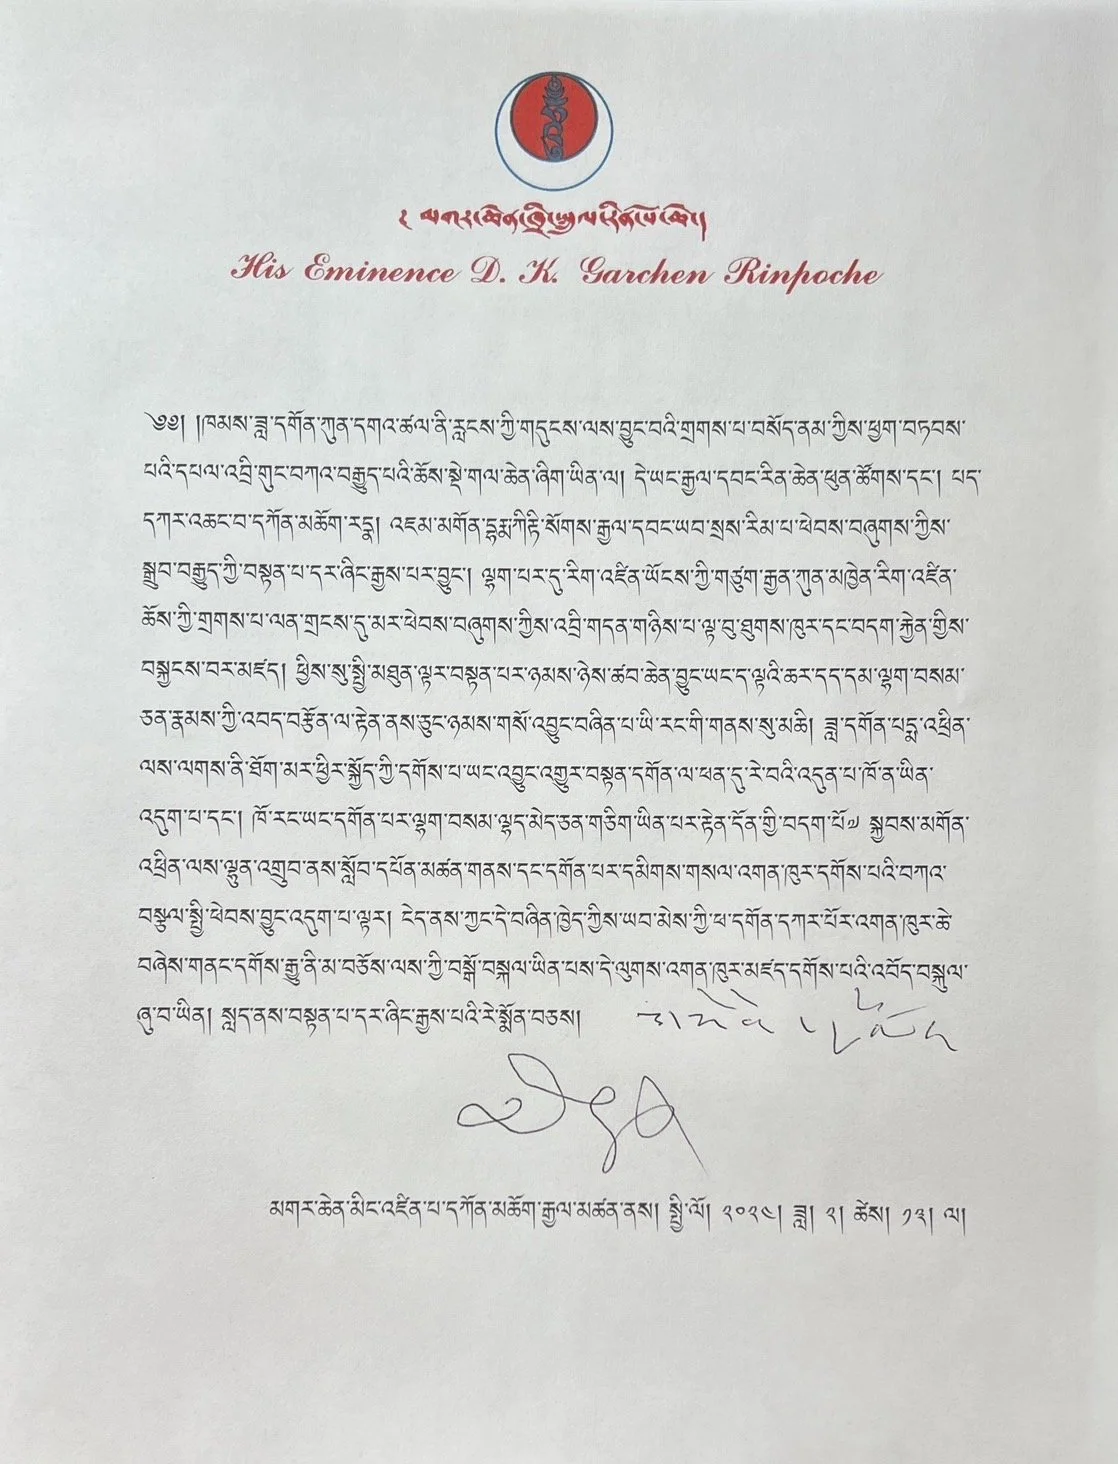 His Eminence D. K. Garchen Rinpoche
༄༅། །ཁམས་ཟླ་དགོན་ཀུན་དགའ་ཚལ་ནི་རླངས་ཀྱི་གདུངས་ལས་བྱུང་བའི་གྲགས་པ་བསོད་ནམ་ཀྱིས་ཕྱག་བཏབས་
པའི་དཔལ་འབྲི་གུང་བཀའ་བརྒྱུད་པའི་ཆོས་སྡེ་གལ་ཆེན་ཞིག་ཡིན་ལ། དེ་ཡང་རྒྱལ་དབང་རིན་ཆེན་ཕུན་ཚོགས་དང་། པད་
དཀར་འཆང་བ་དཀོན་མཆོག་རཏྣ། འཇམ་མགོན་དྷརྨཀིརྟི་སོགས་རྒྱལ་དབང་ཡབ་སྲས་རིམ་པ་ཕེབས་བཞུགས་ཀྱིས་
སྒྲུབ་བརྒྱུད་ཀྱི་བསྟན་པ་དར་ཞིང་རྒྱས་པར་བྱུང་། ལྷག་པར་དུ་རིག་འཛིན་ཡོངས་ཀྱི་གཙུག་རྒྱན་ཀུན་མཁྱེན་རིག་འཛིན་
ཆོས་ཀྱི་གྲགས་པ་ལན་གྲངས་དུ་མར་ཕེབས་བཞུགས་ཀྱིས་འབྲི་གདན་གཉིས་པ་ལྟ་བུ་ཐུགས་ཁུར་དང་བདག་རྐྱེན་གྱིས་
བསྐྱངས་བར་མཛད། ཕྱིས་སུ་སྤྱི་མཐུན་ལྟར་བསྟན་པར་ཉམས་ཉེས་ཚབ་ཆེན་བྱུང་ཡང་ད་ལྟའི་ཆར་དད་དམ་ལྷག་བསམ་
ཅན་རྣམས་ཀྱི་འབད་བརྩོན་ལ་རྟེན་ནས་ཅུང་ཉམས་གསོ་འབྱུང་བཞིན་པ་ཡི་རང་གི་གནས་སུ་མཆི། ཟླ་དགོན་པདྨ་འཕྲིན་
ལས་ལགས་ནི་ཐོག་མར་ཕྱིར་སྐྱོད་ཀྱི་དགོས་པ་ཡང་འབྱུང་འགྱུར་བསྟན་དགོན་ལ་ཕན་དུ་རེ་བའི་འདུན་པ་ཁོ་ན་ཡིན་
འདུག་པ་དང་། ཁོ་རང་ཡང་དགོན་པར་ལྷག་བསམ་ལྷད་མེད་ཅན་གཅིག་ཡིན་པར་རྟེན་དོན་གྱི་བདག་པོ༧ སྐྱབས་མགོན་
འཕྲིན་ལས་ལྷུན་འགྲུབ་ནས་སློབ་དཔོན་མཚན་གནས་དང་དགོན་པར་དམིགས་གསལ་འགན་ཁུར་དགོས་པའི་བཀའ་
བསྩལ་སྤྱི་ཕེབས་བྱུང་འདུག་པ་ལྟར། ངེད་ནས་ཀྱང་དེ་བཞིན་ཁྱེད་ཀྱིས་ཡབ་མེས་ཀྱི་ཕ་དགོན་དཀར་པོར་འགན་ཁུར་ཆེ་
བཞེས་གནང་དགོས་རྒྱུ་ནི་མ་བཅོས་ལས་ཀྱི་བསྒོ་བསྐལ་ཡིན་པས་དེ་ལུགས་འགན་ཁུར་མཛད་དགོས་པའི་འབོད་བསྐུལ་
ཞུ་བ་ཡིན། སླད་ནས་བསྟན་པ་དར་ཞིང་རྒྱས་པའི་རེ་སྨོན་བཅས།
མགར་ཆེན་མིང་འཛིན་པ་དཀོན་མཆོག་རྒྱལ་མཚན་ནས། སྤྱི་ལོ། ༢༠༢༤། ཟླ། ༢། ཚེས། ༡༣། ལ།